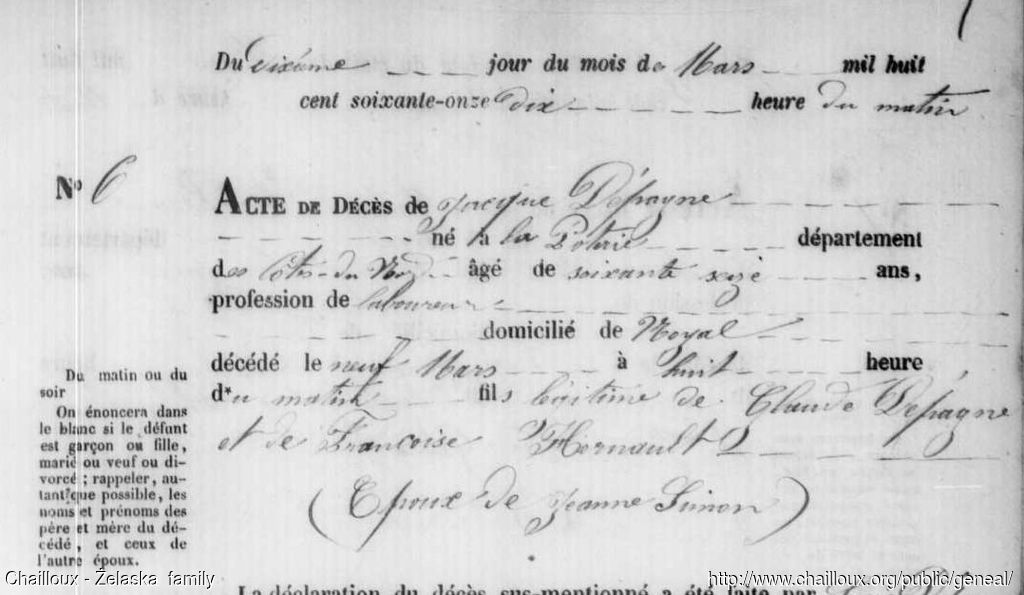 Du dixième jour du mois de Mars mil huit
cent soixante-onze dix heure du matin
N° 6
ACTE DE DÉCÈS de jacque Dépagne
né à la Potrie département
des Côtes-du Nord âgé de soixante seize ans,
profession de laboureur
domicilié de Noyal
décédé le neuf Mars à huit heure
du matin fils légitime de Claude Dépagne
et de Françoise Hornault
(Epoux de jeanne Simon)
Du matin ou du
soir
On énoncera dans
le blanc si le défunt
est garçon ou fille,
marié ou veuf ou di-
vorcé ; rappeler, au-
tant que possible, les
noms et prénoms des
père et mère du dé-
cédé, et ceux de
l'autre époux.
La déclaration du décès sus-mentionné a été faite par
Chailloux - Želaska family
http://www.chailloux.org/public/geneal/